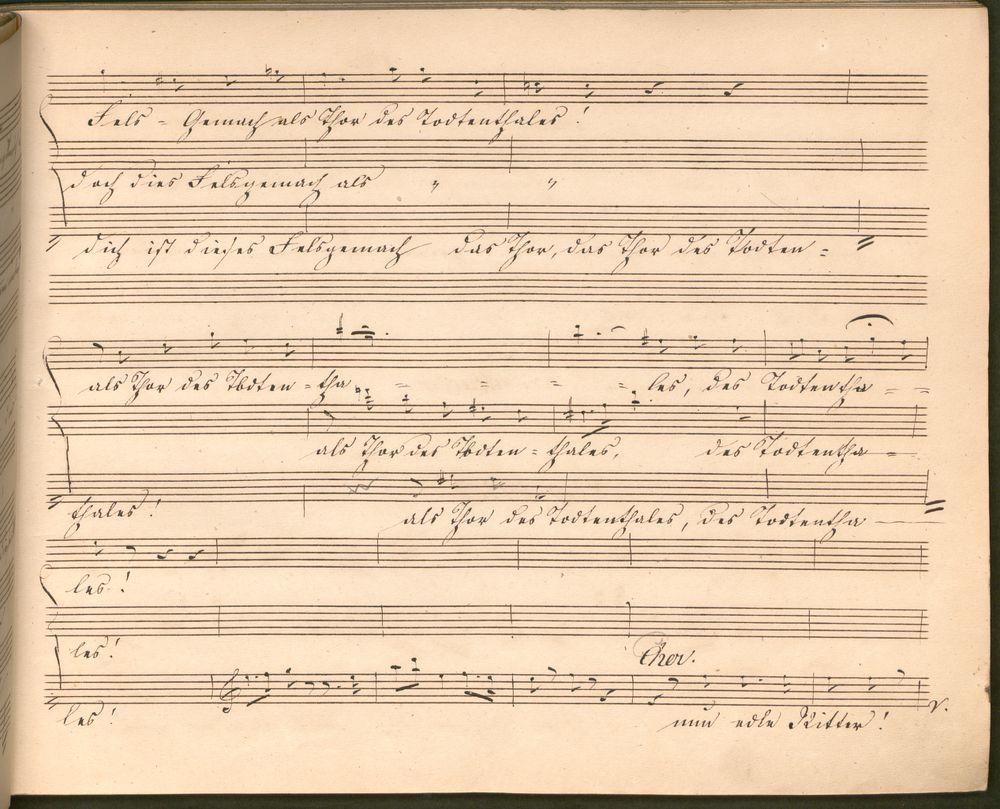 Fels = Gemach als Thor des Todtenthales!
doch dies Felsgemach als " "
dich ist dieses Felsgemach das Thor, das Thor des Todten =
als Thor des Todten = tha = = = = les, des Todtentha = =
als Thor des Todten = thales, des Todtentha = -
thales! als Thor des Todtenthales, des Todtentha -
les!
les!
Chor.
les! nun edle Ritter! V.